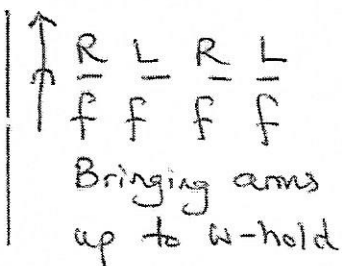 R L R L
f f f f
Bringing arms
up to W-hold